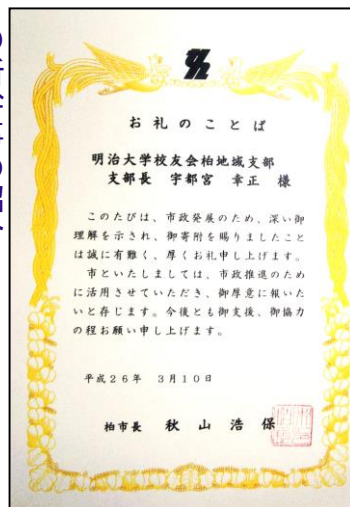 お礼のことば
明治大学校友会柏地域支部
支部長 宇都宮 幸正 様
このたびは、市政発展のため、深い御
理解を示され、御寄附を賜りましたこと
は誠に有難く、厚くお礼申し上げます。
市といたしましては、市政推進のため
に活用させていただき、御厚意に報いた
いと存じます。今後とも御支援、御協力
の程お願い申し上げます。
平成26年 3月10日
柏市長 秋山浩保